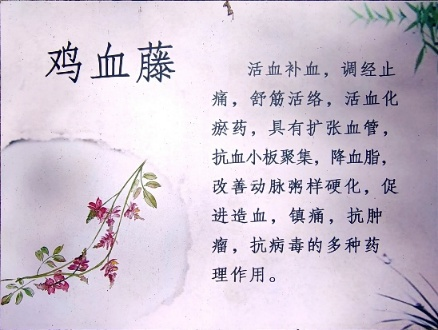 鸡血藤
活血补血，调经止
痛，舒筋活络，活血化
瘀药，具有扩张血管，
抗血小板聚集，降血脂，
改善动脉粥样硬化，促
进造血，镇痛，抗肿
瘤，抗病毒的多种药
理作用。